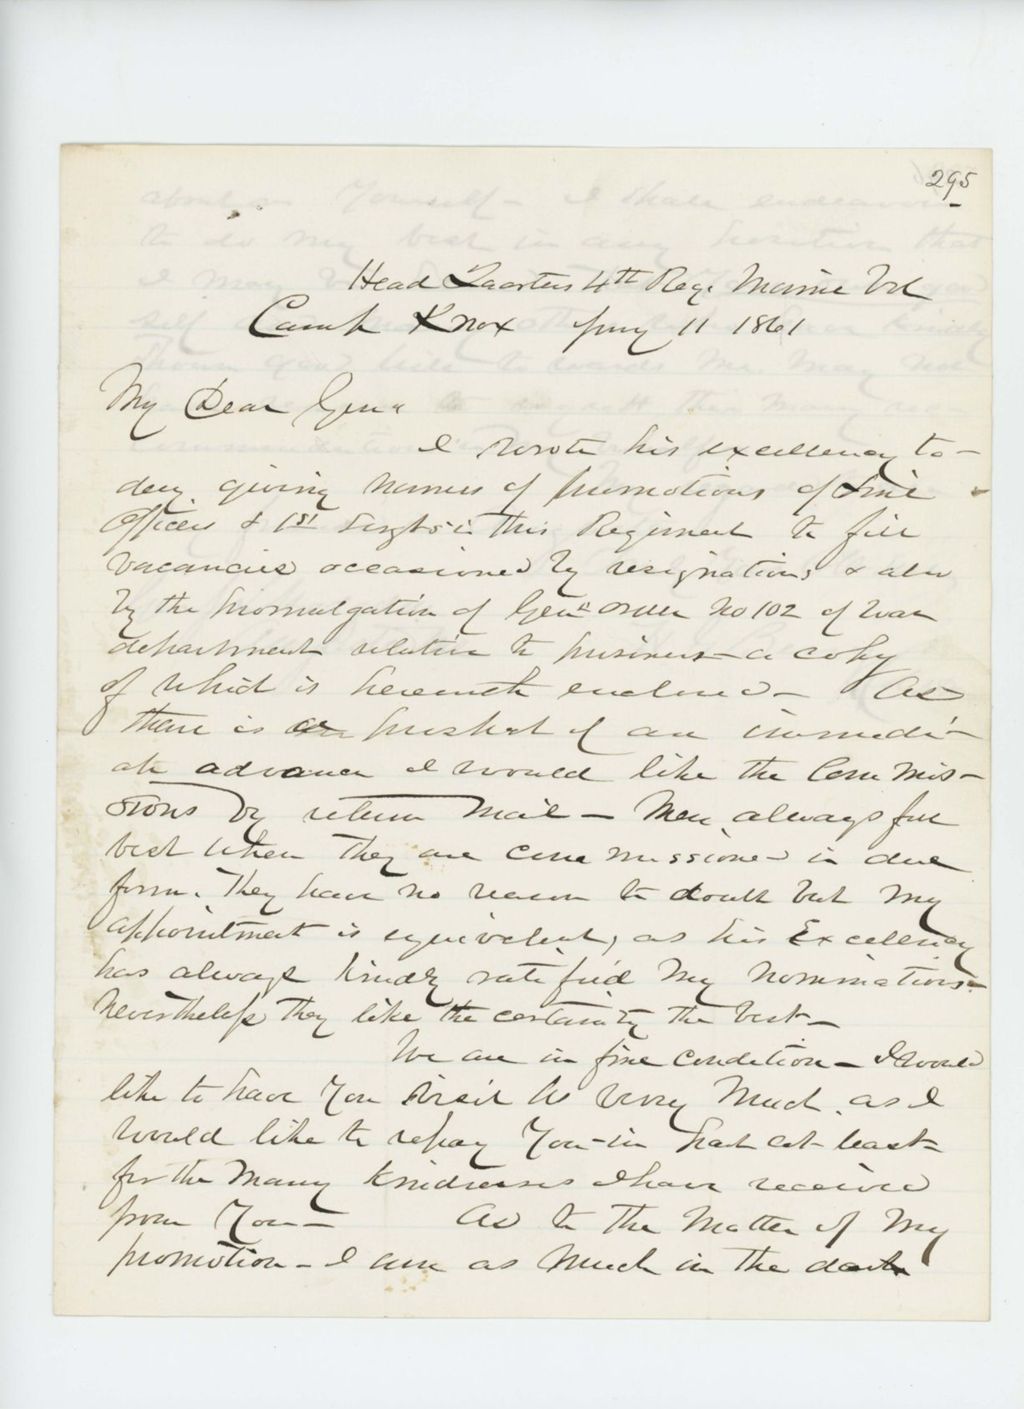 295
Head Quarters 4th Reg. Maine Vol
Camp Knox 11 1861
My Dear Genl
I wrote his excellency to-
day giving names of promotions of Line
Officers & 1st Sergts in this Regiment to fill
vacancies occasioned by resignations & also
by the promulgation of Genl order No 102 of War
department relative to prisoners a copy
of which is herewith enclosed - As
there is a prospect of an immedi-
ate advance I would like the Commis-
sions by return mail - Men always feel
best when they are commissioned in due
form. They have no reason to doubt but my
appointment is equivelent, as his Excellency
has always kindly ratified my nominations-
Nevertheless they like the certainty the best -
We are in fine condition - I would
like to have You visit us very Much, as I
would like to repay You - in part at least -
for the Many Kindnesses I have received
from You - As to the Matter of My
promotion - I am as Much in the dark